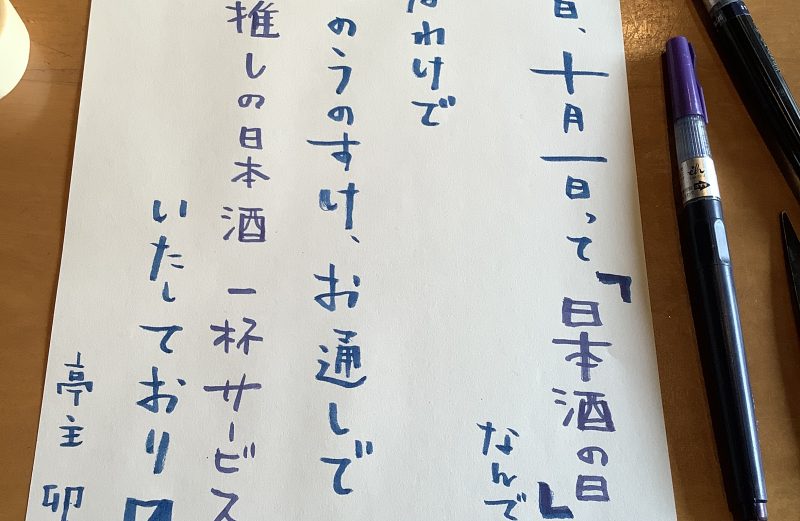 日、十月一日って『日本酒の日』
なんで
なわけで
のうのすけ、お通しで
推しの日本酒 一杯サービス
いたしており
亭主 卯